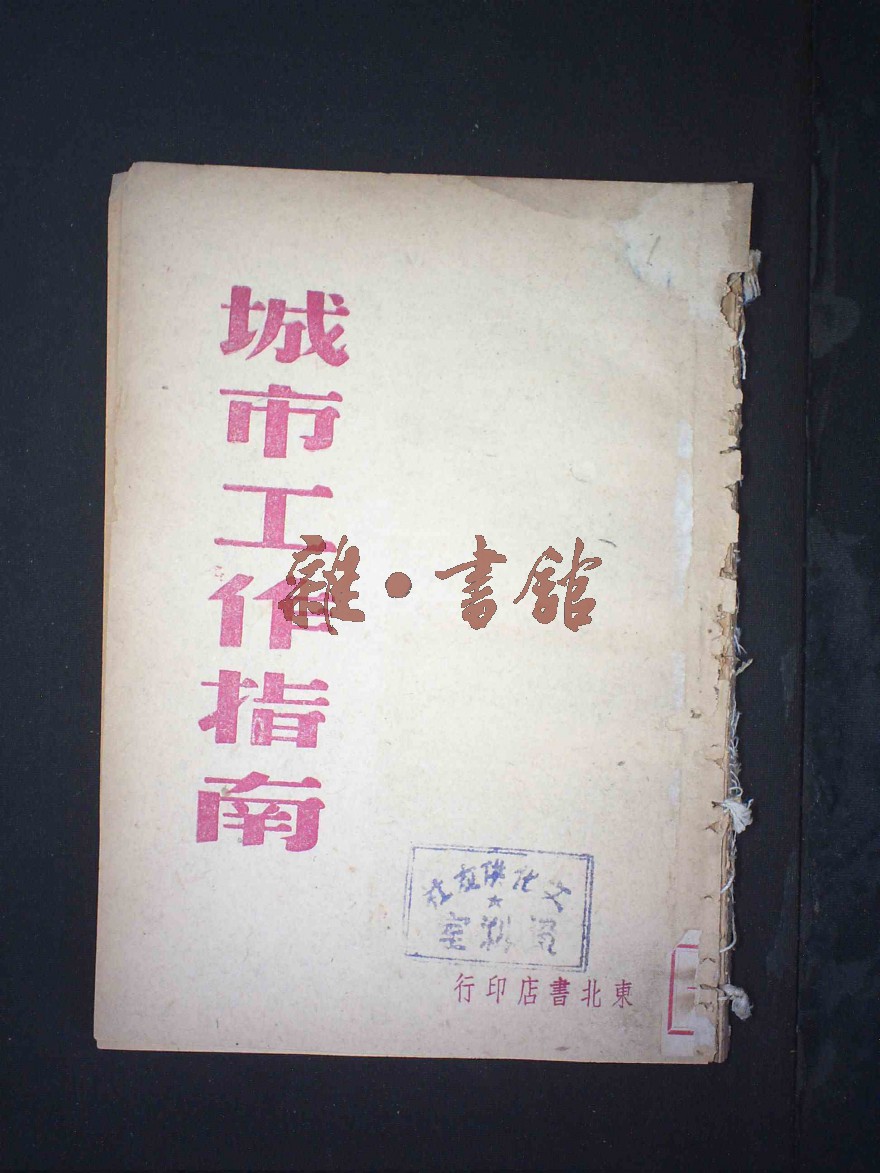 城市工作指南
雜·書館
文化供應社
★
資料室
東北書店印行